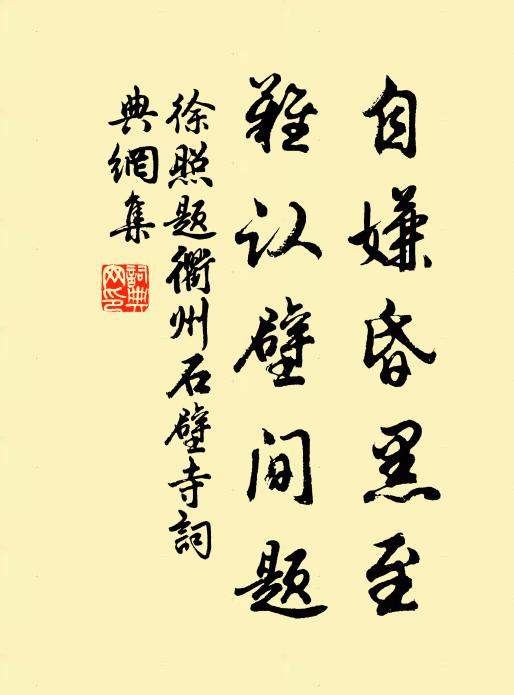 自嫌昏黑至
难认壁间题
徐照题衢州石壁寺词
典网集
词典
网印